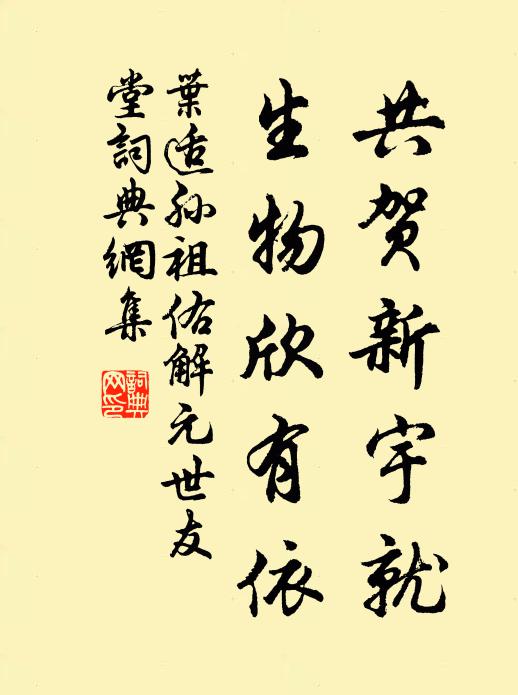 共贺新宇就
生物欣有依
葉适孙祖佑解元世友
堂詞典網集
詞典
网印